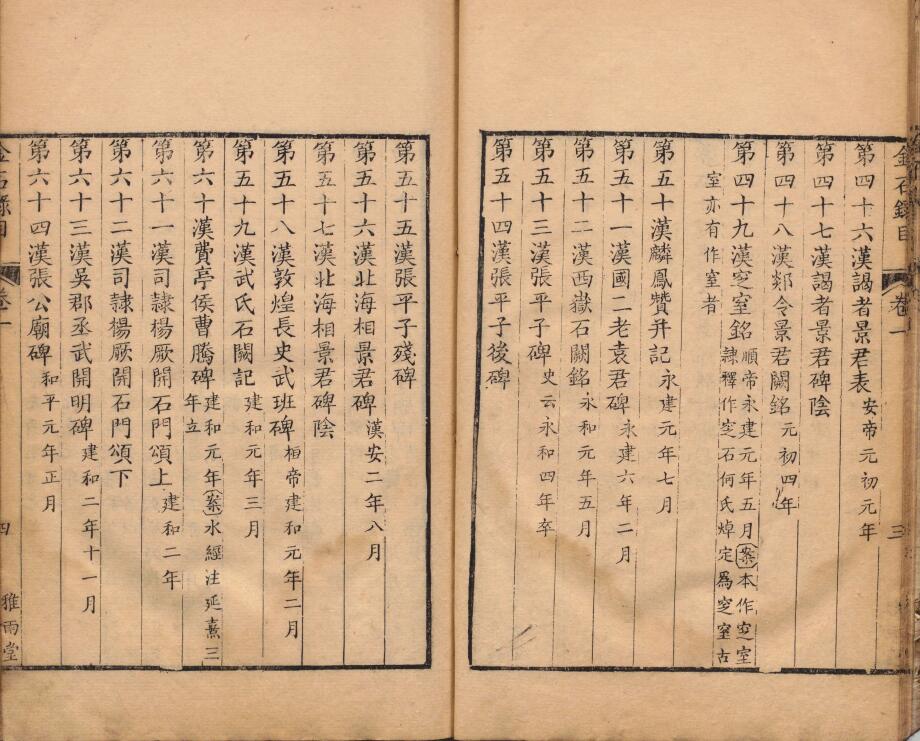 金石錄目 卷一 三
第四十六漢謁者景君表 安帝元初元年
第四十七漢謁者景君碑陰
第四十八漢郯令景君闕銘 元初四年
第四十九漢窆室銘 順帝永建元年五月案本作窆室
隸釋作窆石何氏焯定爲窆室古
室亦有作室者
第五十漢麟鳳贊并記 永建元年七月
第五十一漢國二老袁君碑 永建六年二月
第五十二漢西嶽石闕銘 永和元年五月
第五十三漢張平子碑 史云永和四年卒
第五十四漢張平子後碑
第五十五漢張平子殘碑
第五十六漢北海相景君碑 漢安二年八月
第五十七漢北海相景君碑陰
第五十八漢敦煌長史武班碑 桓帝建和元年二月
第五十九漢武氏石闕記 建和元年三月
第六十漢費亭侯曹騰碑 建和元年案水經注延熹三
年立
第六十一漢司隸楊厥開石門頌上 建和二年
第六十二漢司隸楊厥開石門頌下
第六十三漢吳郡丞武開明碑 建和二年十一月
第六十四漢張公廟碑 和平元年正月
金石錄目 卷一 四 雅雨堂